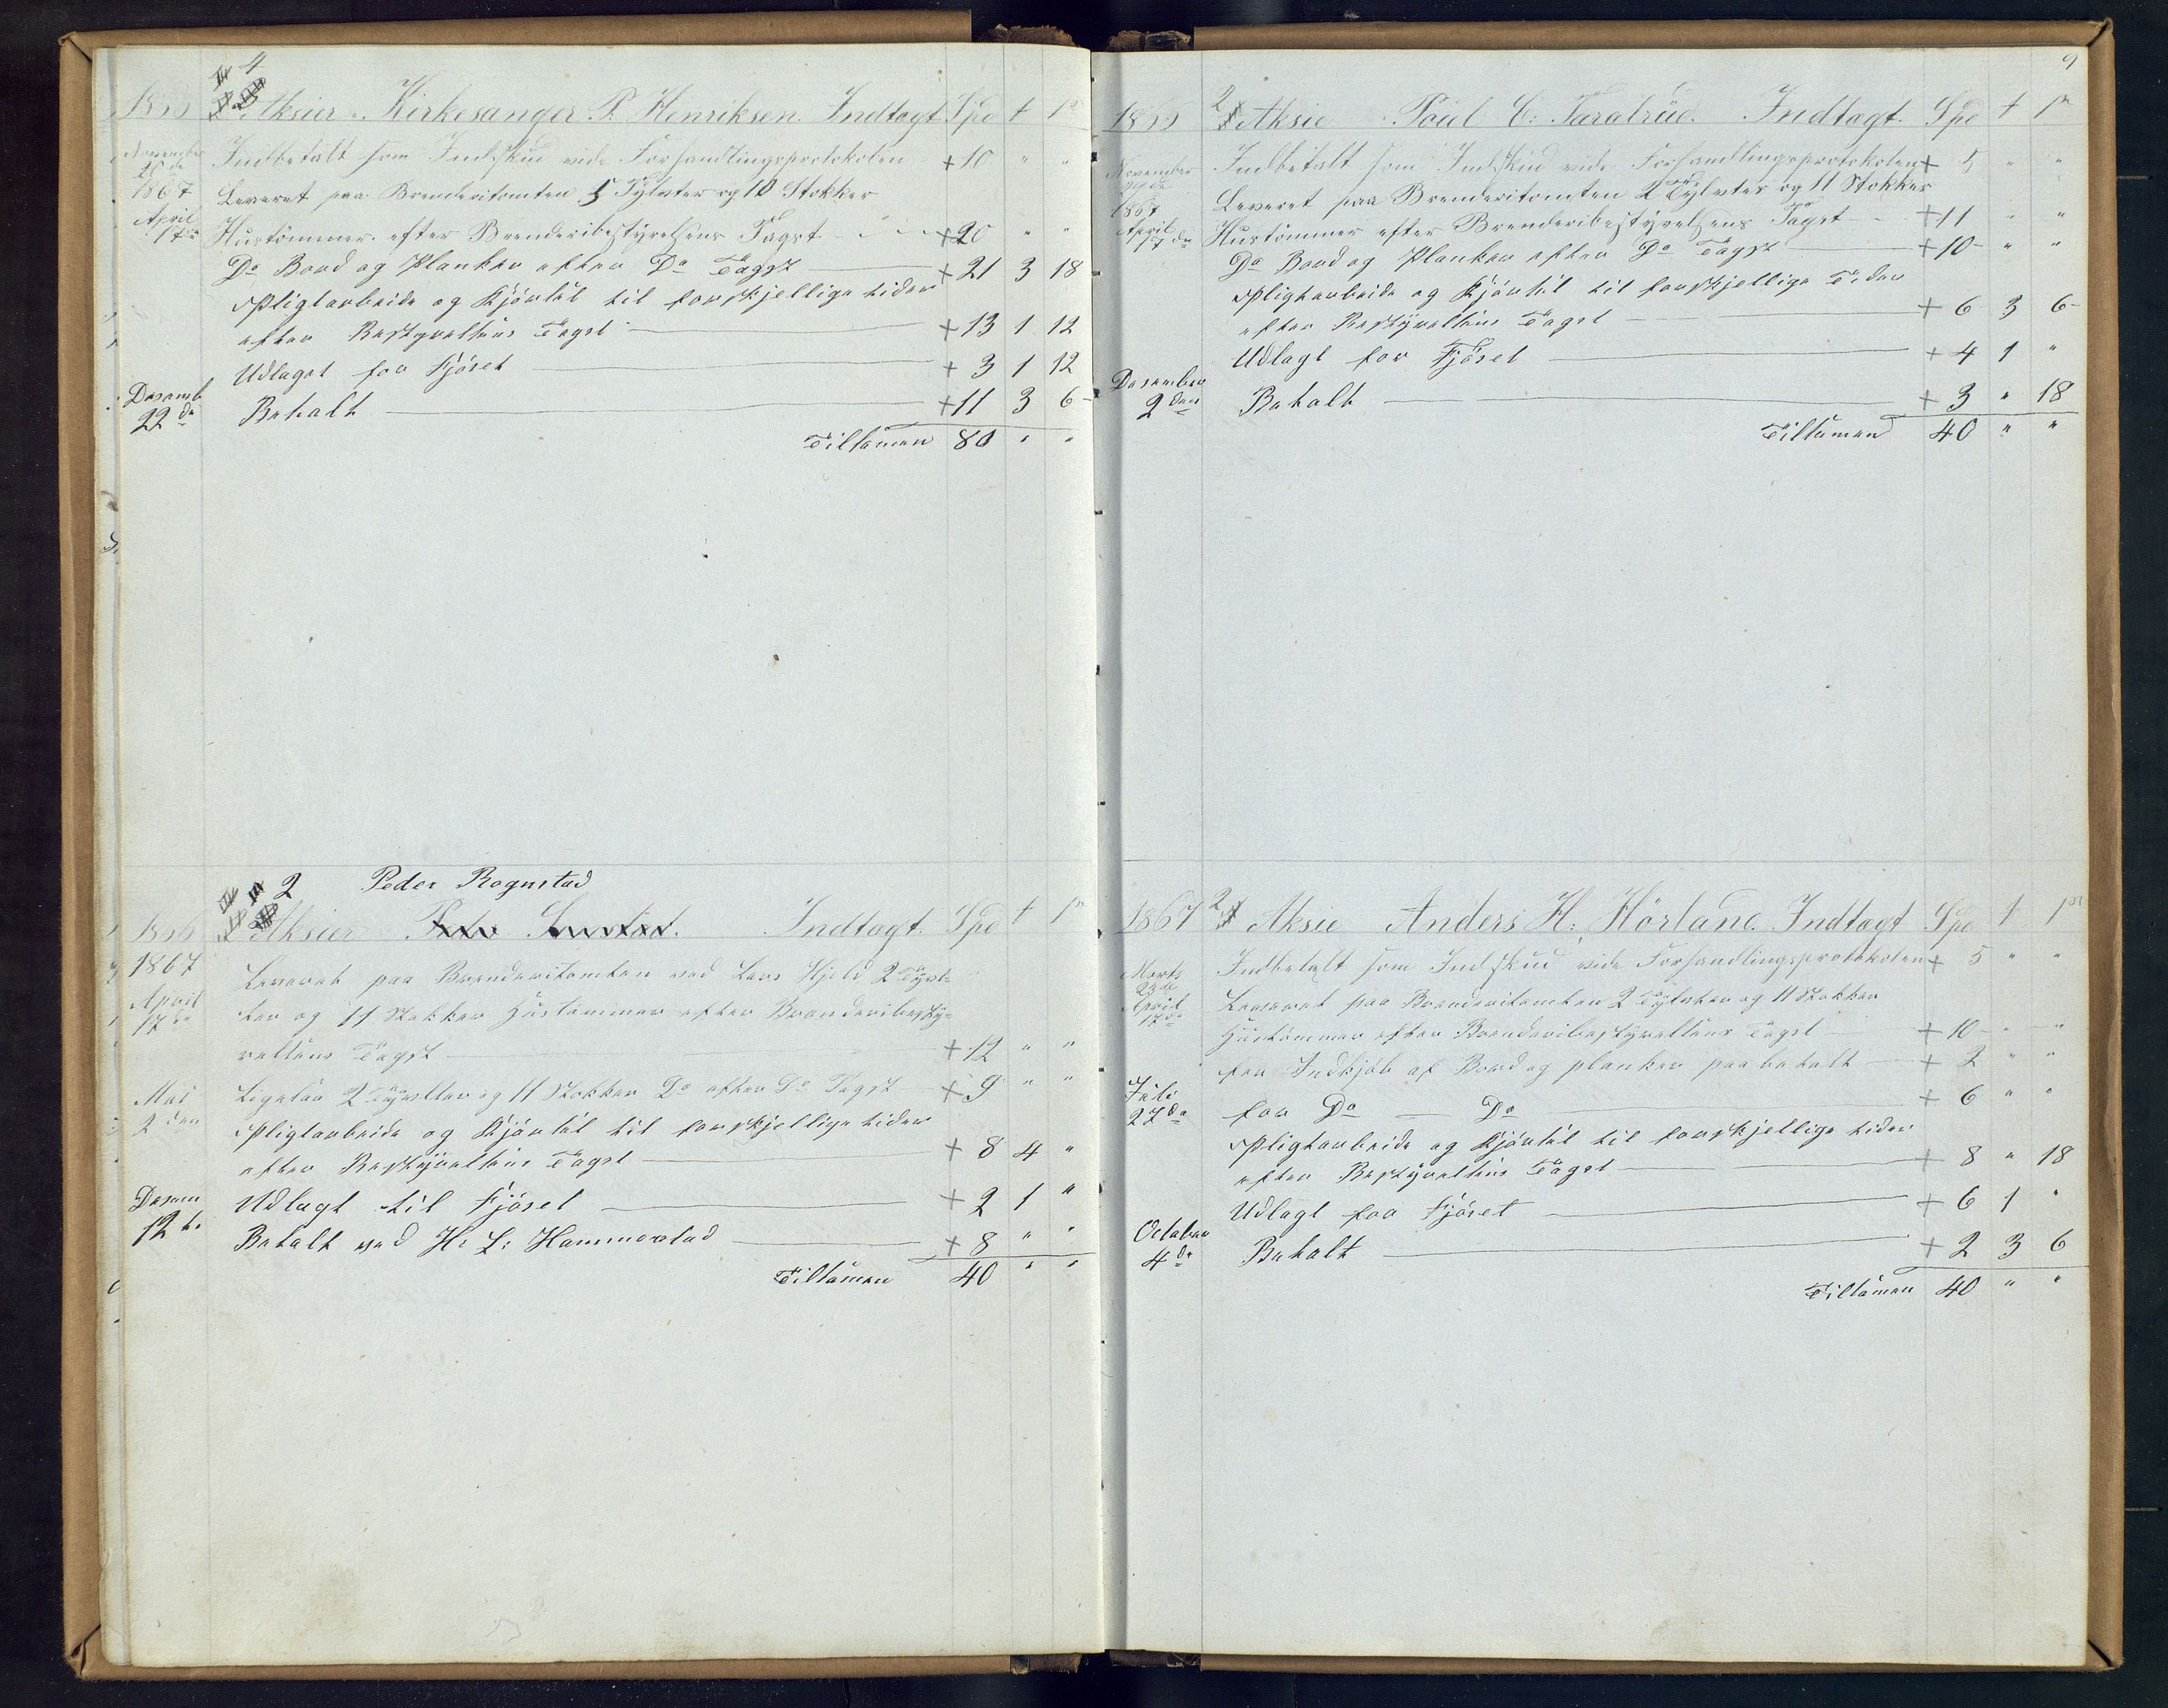 4
1866 Aksier Kirkesanger P. Henriksen. Indtægt Spd
November Indbetalt som Indskud vide Forhandlingsprotokolen +10 " "
1867 Leveret paa Brenderitomten 5 Tylvter og 10 Stokker
April 17de Hustømmer efter Brenderibestyrelsens Tagst +20 " "
Do Bord og Planker efter Do Tagst +21 3 18
Pligtarbeide og Kjørsel til forskjellige tider
efter Bestyrelsens Tagst +13 1 12
Udlaget for Fjøset +3 1 12
Desemb 22de Betalt +11 3 6
Tilsamen 80 " "
2 Peder Rognstad
1866 Aksier Indtægt. Spd
1867 Leveret paa Brenderitomten ved Lars Hjeld 2 Tylv-
April 17de ter og 11 Stokker Hustømmer efter Brenderibesty-
relsens Tagst +12 " "
Mai 2den Ligesaa 2 Tylvter og 11 Stokker Do efter Do Tagst +9 " "
Pligtarbeide og Kjørsel til forskjellige tider
efter Bestyrelsens Tagst +8 4 "
Desem 12te Udlagt til Fjøset +2 1 "
Betalt ved H. L: Hammerstad +8 " "
Tilsamen 40 " "
9
1866 2 Aksie Poul C: Taralrud. Indtægt. Spd
November Indbetalt som Indskud vide Forhandlingsprotokolen + 5 " "
1867 Leveret paa Brenderitomten 2 Tylvter og 11 Stokker
April 17de Hustømmer efter Brenderibestyrelsens Tagst +11 " "
Do Bord og Planker efter Do Tagst +10 " "
Pligtarbeide og Kjørsel til forskjellige Tider
efter Bestyrelsens Tagst + 6 3 6
Udlagt for Fjøset + 4 1 "
Desember 2den Betalt + 3 " 18
Tilsamen 40 " "
1867 2 Aksie Anders H: Hørland. Indtægt Spd
Marts Indbetalt som Indskud vide Forhandlingsprotokolen + 5 " "
April 17de Leveret paa Brenderitomten 2 Tylvter og 11 Stokker
Hustømmer efter Brenderibestyrelsens Tagst + 10 " "
for Indkjøb af Bord og planker paa betalt + 2 " "
Juli 27de for Do Do + 6 " "
Pligtarbeide og Kjørsel til forskjellige tider
efter Bestyrelsens Tagst + 8 " 18
Udlagt for Fjøset + 6 1 "
October 4de Betalt + 2 3 6
Tilsamen 40 " "